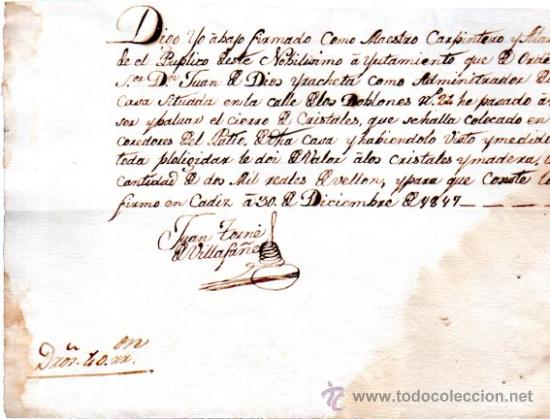 Digo Yo abajo firmado Como Maestro Carpintero y Alar
de el Publico deste Nobilisimo aYutamiento que d Orde
S.or D.n Juan d Dios Yracheta como Administrador d
Casa Situada en la calle d los Doblones N.º 24 he pasado a
ser y baluar el cierro d Cristales, que se halla colocado en
coredores del Patio, d dha Casa y habiendolo Visto y medido
toda le doi d Valor a los Cristales y madera,
Cantidad d dos Mil reales d vellon, y para que Conste lo
firmo en Cadiz a 30 d Diciembre d 1817
Juan Torné
d Villafañe
on
Dros. 40 rr.
todocoleccion
www.todocoleccion.net